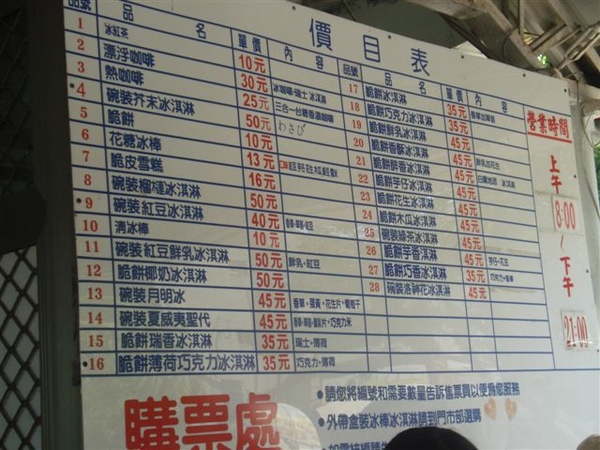 價目表
品號 品名 單價 內容
1 冰紅茶 10元
2 漂浮咖啡 30元 冰咖啡.瑞士冰淇淋
3 熱咖啡 25元 三合一台糖香濃咖啡
•4 碗裝芥末冰淇淋 50元 わさび
5 脆餅 10元
6 花糖冰棒 13元
7 脆皮雪糕 16元
8 碗裝榴槤冰淇淋 50元
•9 碗裝紅豆冰淇淋 40元
10 清冰棒 10元
11 碗裝紅豆鮮乳冰淇淋 50元 鮮乳.紅豆
12 脆餅椰奶冰淇淋 50元
13 碗裝月明冰 45元 香草.蛋黃.花生片.葡萄干
14 碗裝夏威夷聖代 45元
15 脆餅瑞香冰淇淋 35元 瑞士.薄荷
•16 脆餅薄荷巧克力冰淇淋 35元 巧克力.薄荷
品號 品名 單價 內容
17 脆餅冰淇淋 35元
18 脆餅巧克力冰淇淋 35元
19 脆餅鮮乳冰淇淋 45元
20 脆餅香酥冰淇淋 45元
21 脆餅醉香冰淇淋 45元
22 脆餅芋仔冰淇淋 45元
23 脆餅花生冰淇淋 45元
24 脆餅木瓜冰淇淋 45元
25 碗裝綠茶冰淇淋 45元
26 脆餅芋香冰淇淋 45元
27 脆餅巧香冰淇淋 35元 巧克力.香草
28 碗裝洛神花冰淇淋 45元
營業時間
上午
8:00
/
下午
21:00
購票處
•請您將編號和需要數量告訴售票員以便為您服務
•外帶盒裝冰棒冰淇淋請到門市部選購